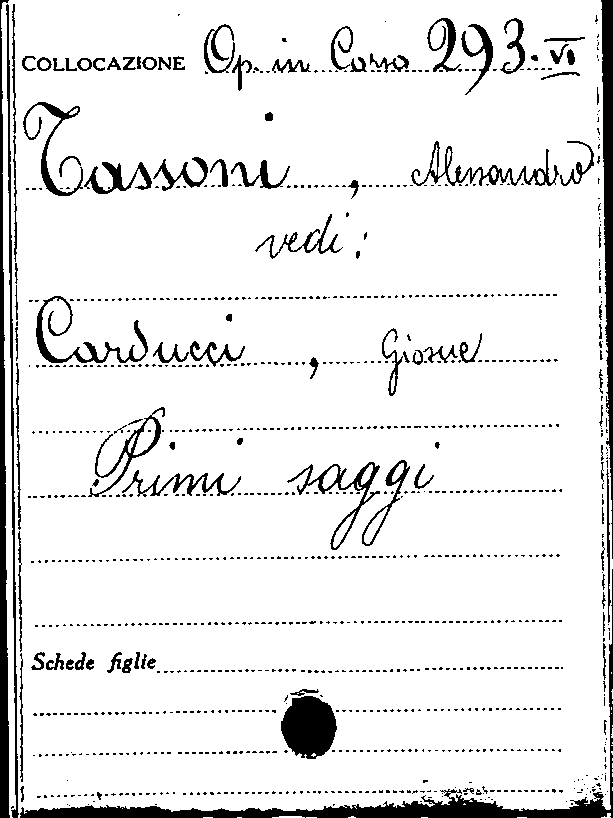 COLLOCAZIONE Op. in Corso 293.VI
Tassoni, Alessandro
vedi:
Carducci, Giosue
Primi saggi
Schede figlie